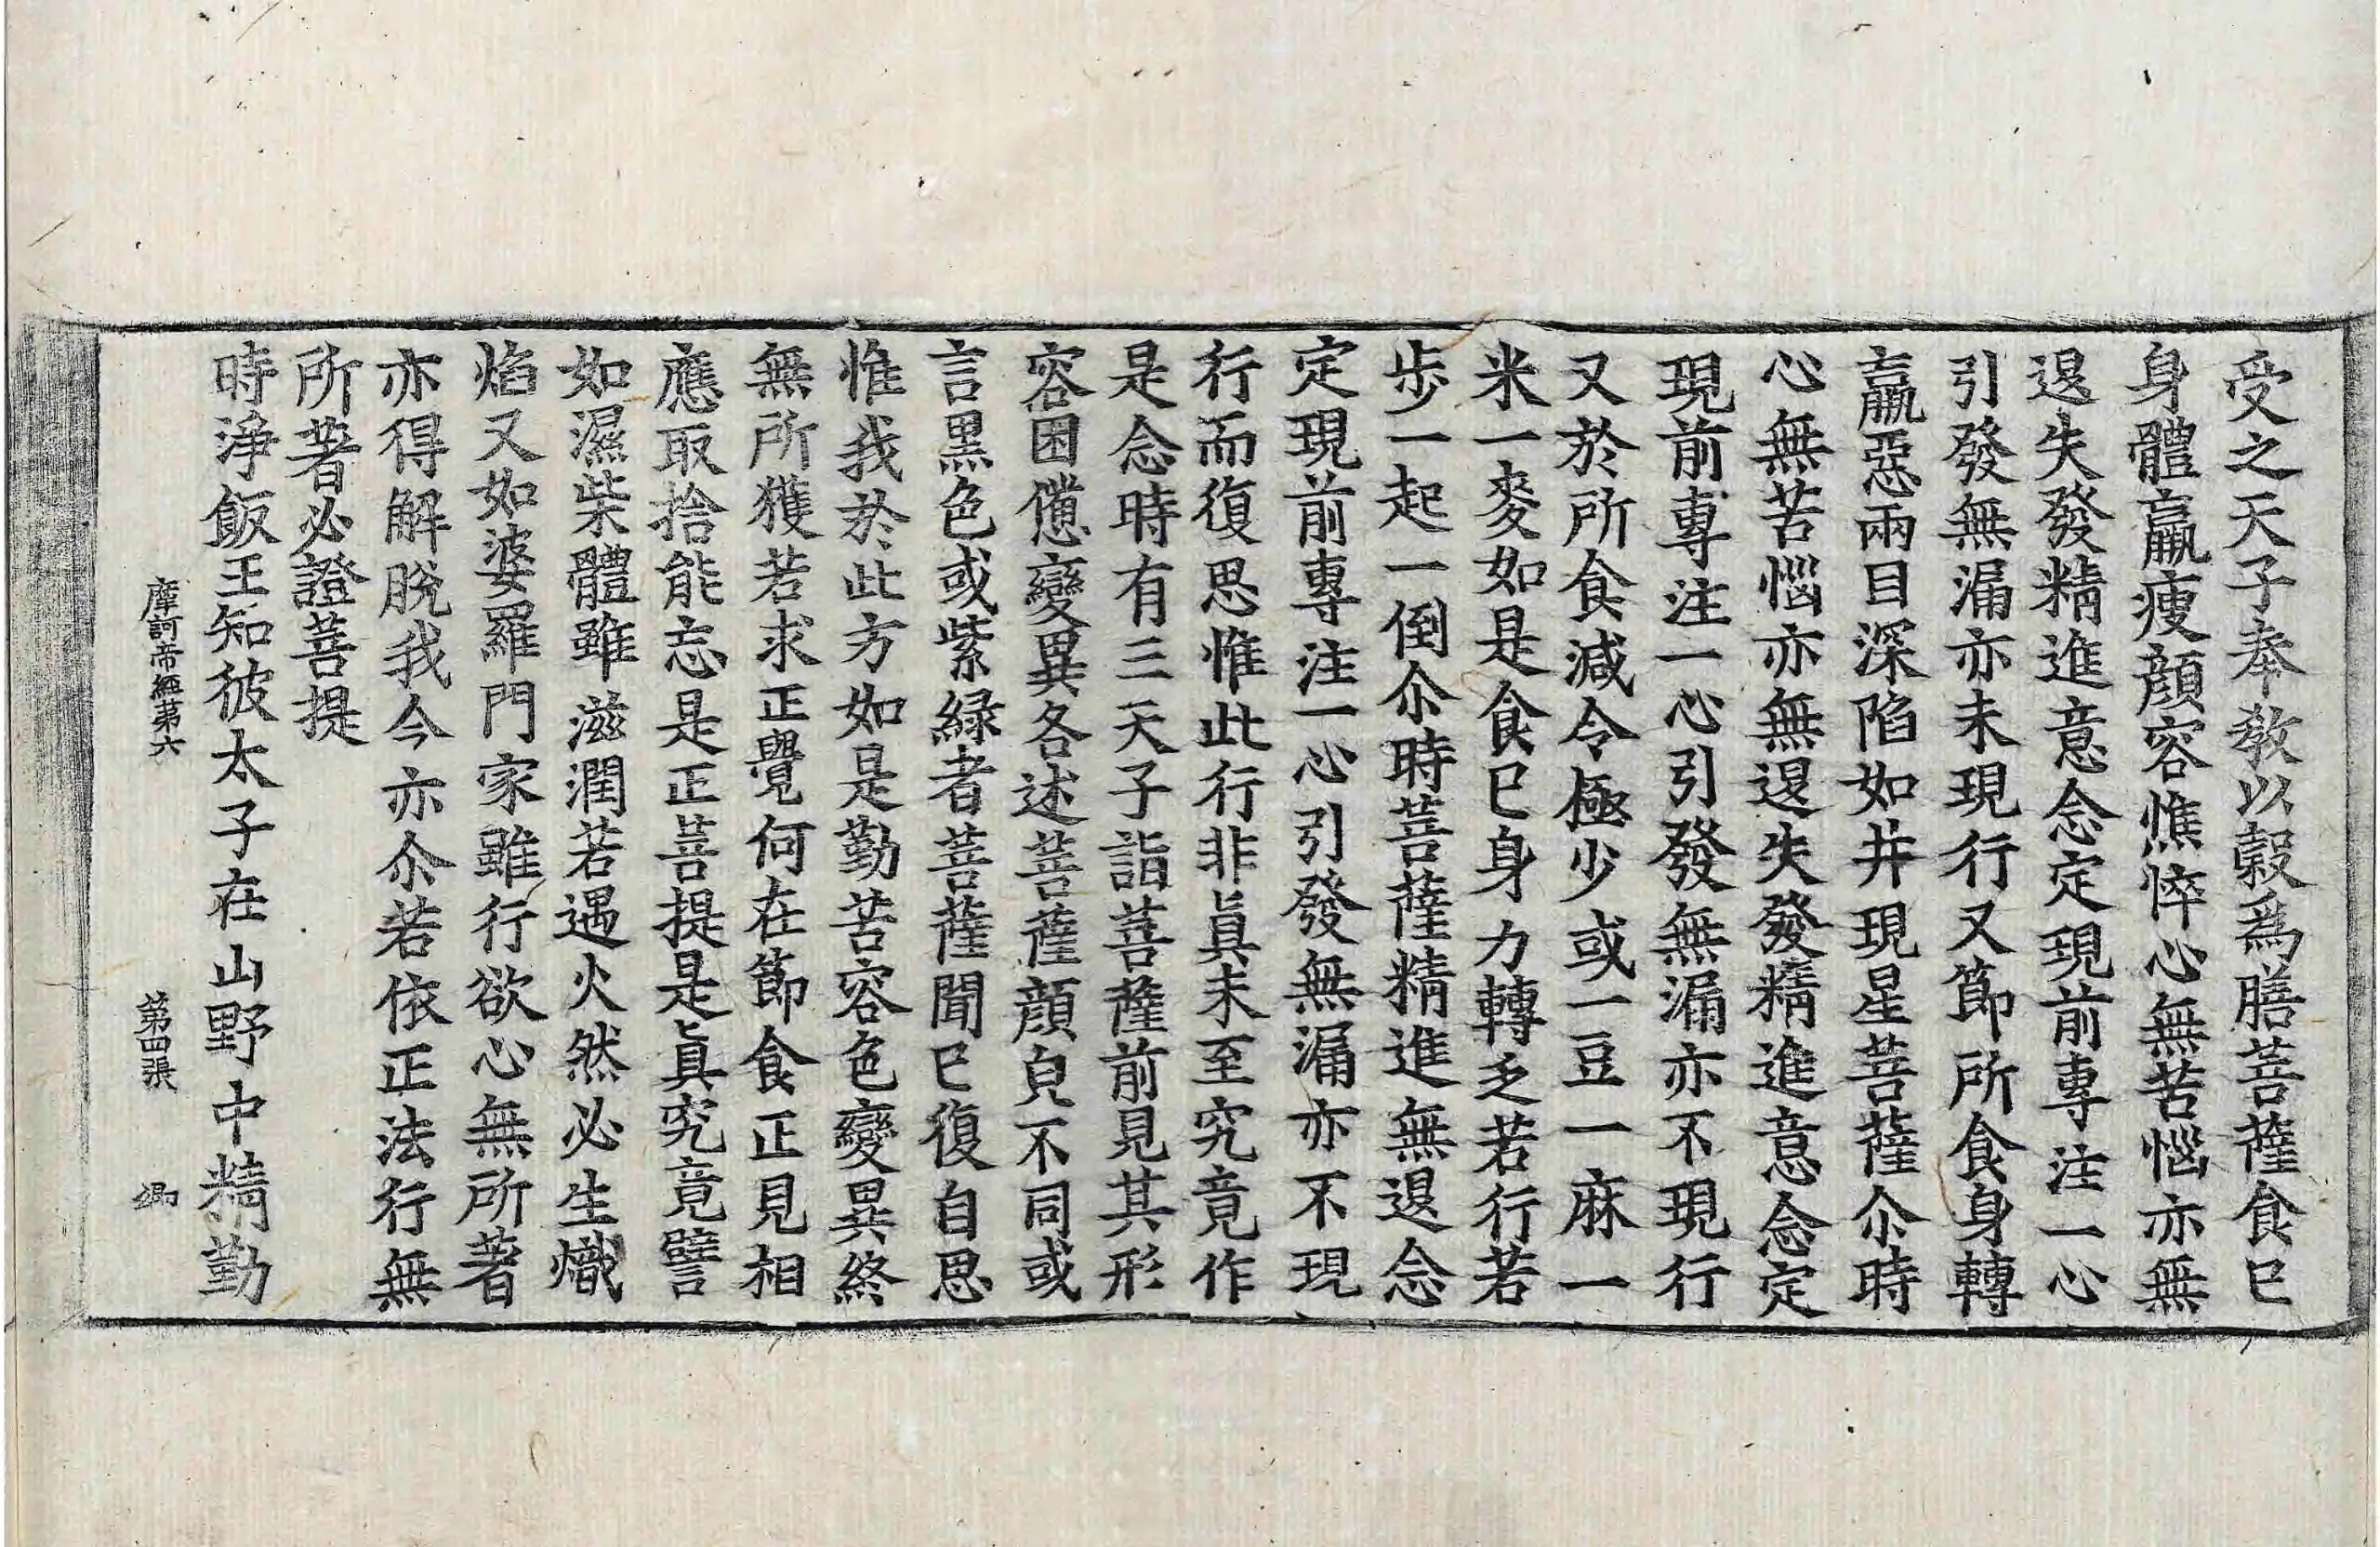 受之天子奉教以縠為膳菩薩食巳
身體羸瘦顔容憔悴心無苦惱亦無
退失發精進意念定現前專注一心
引發無漏亦未現行又節所食身轉
羸惡兩目深陷如井現星菩薩尒時
心無苦惱亦無退失發精進意念定
現前專注一心引發無漏亦不現行
又於所食減令極少或一豆一麻一
米一麥如是食巳身力轉乏若行若
步一起一倒尒時菩薩精進無退念
定現前專注一心引發無漏亦不現
行而復思惟此行非眞未至究竟作
是念時有三天子詣菩薩前見其形
容困憊變異各述菩薩顔皃不同或
言黒色或紫緑者菩薩聞巳復自思
惟我於此方如是勤苦容色變異終
無所獲若求正覺何在節食正見相
應取捨能忘是正菩提是眞究竟譬
如濕柴體雖滋潤若遇火然必生熾
焰又如婆羅門家雖行欲心無所著
亦得解脫我今亦尒若依正法行無
所著必證菩提
時淨飯王知彼太子在山野中精勤
摩訶帝經第六 第四張 卿